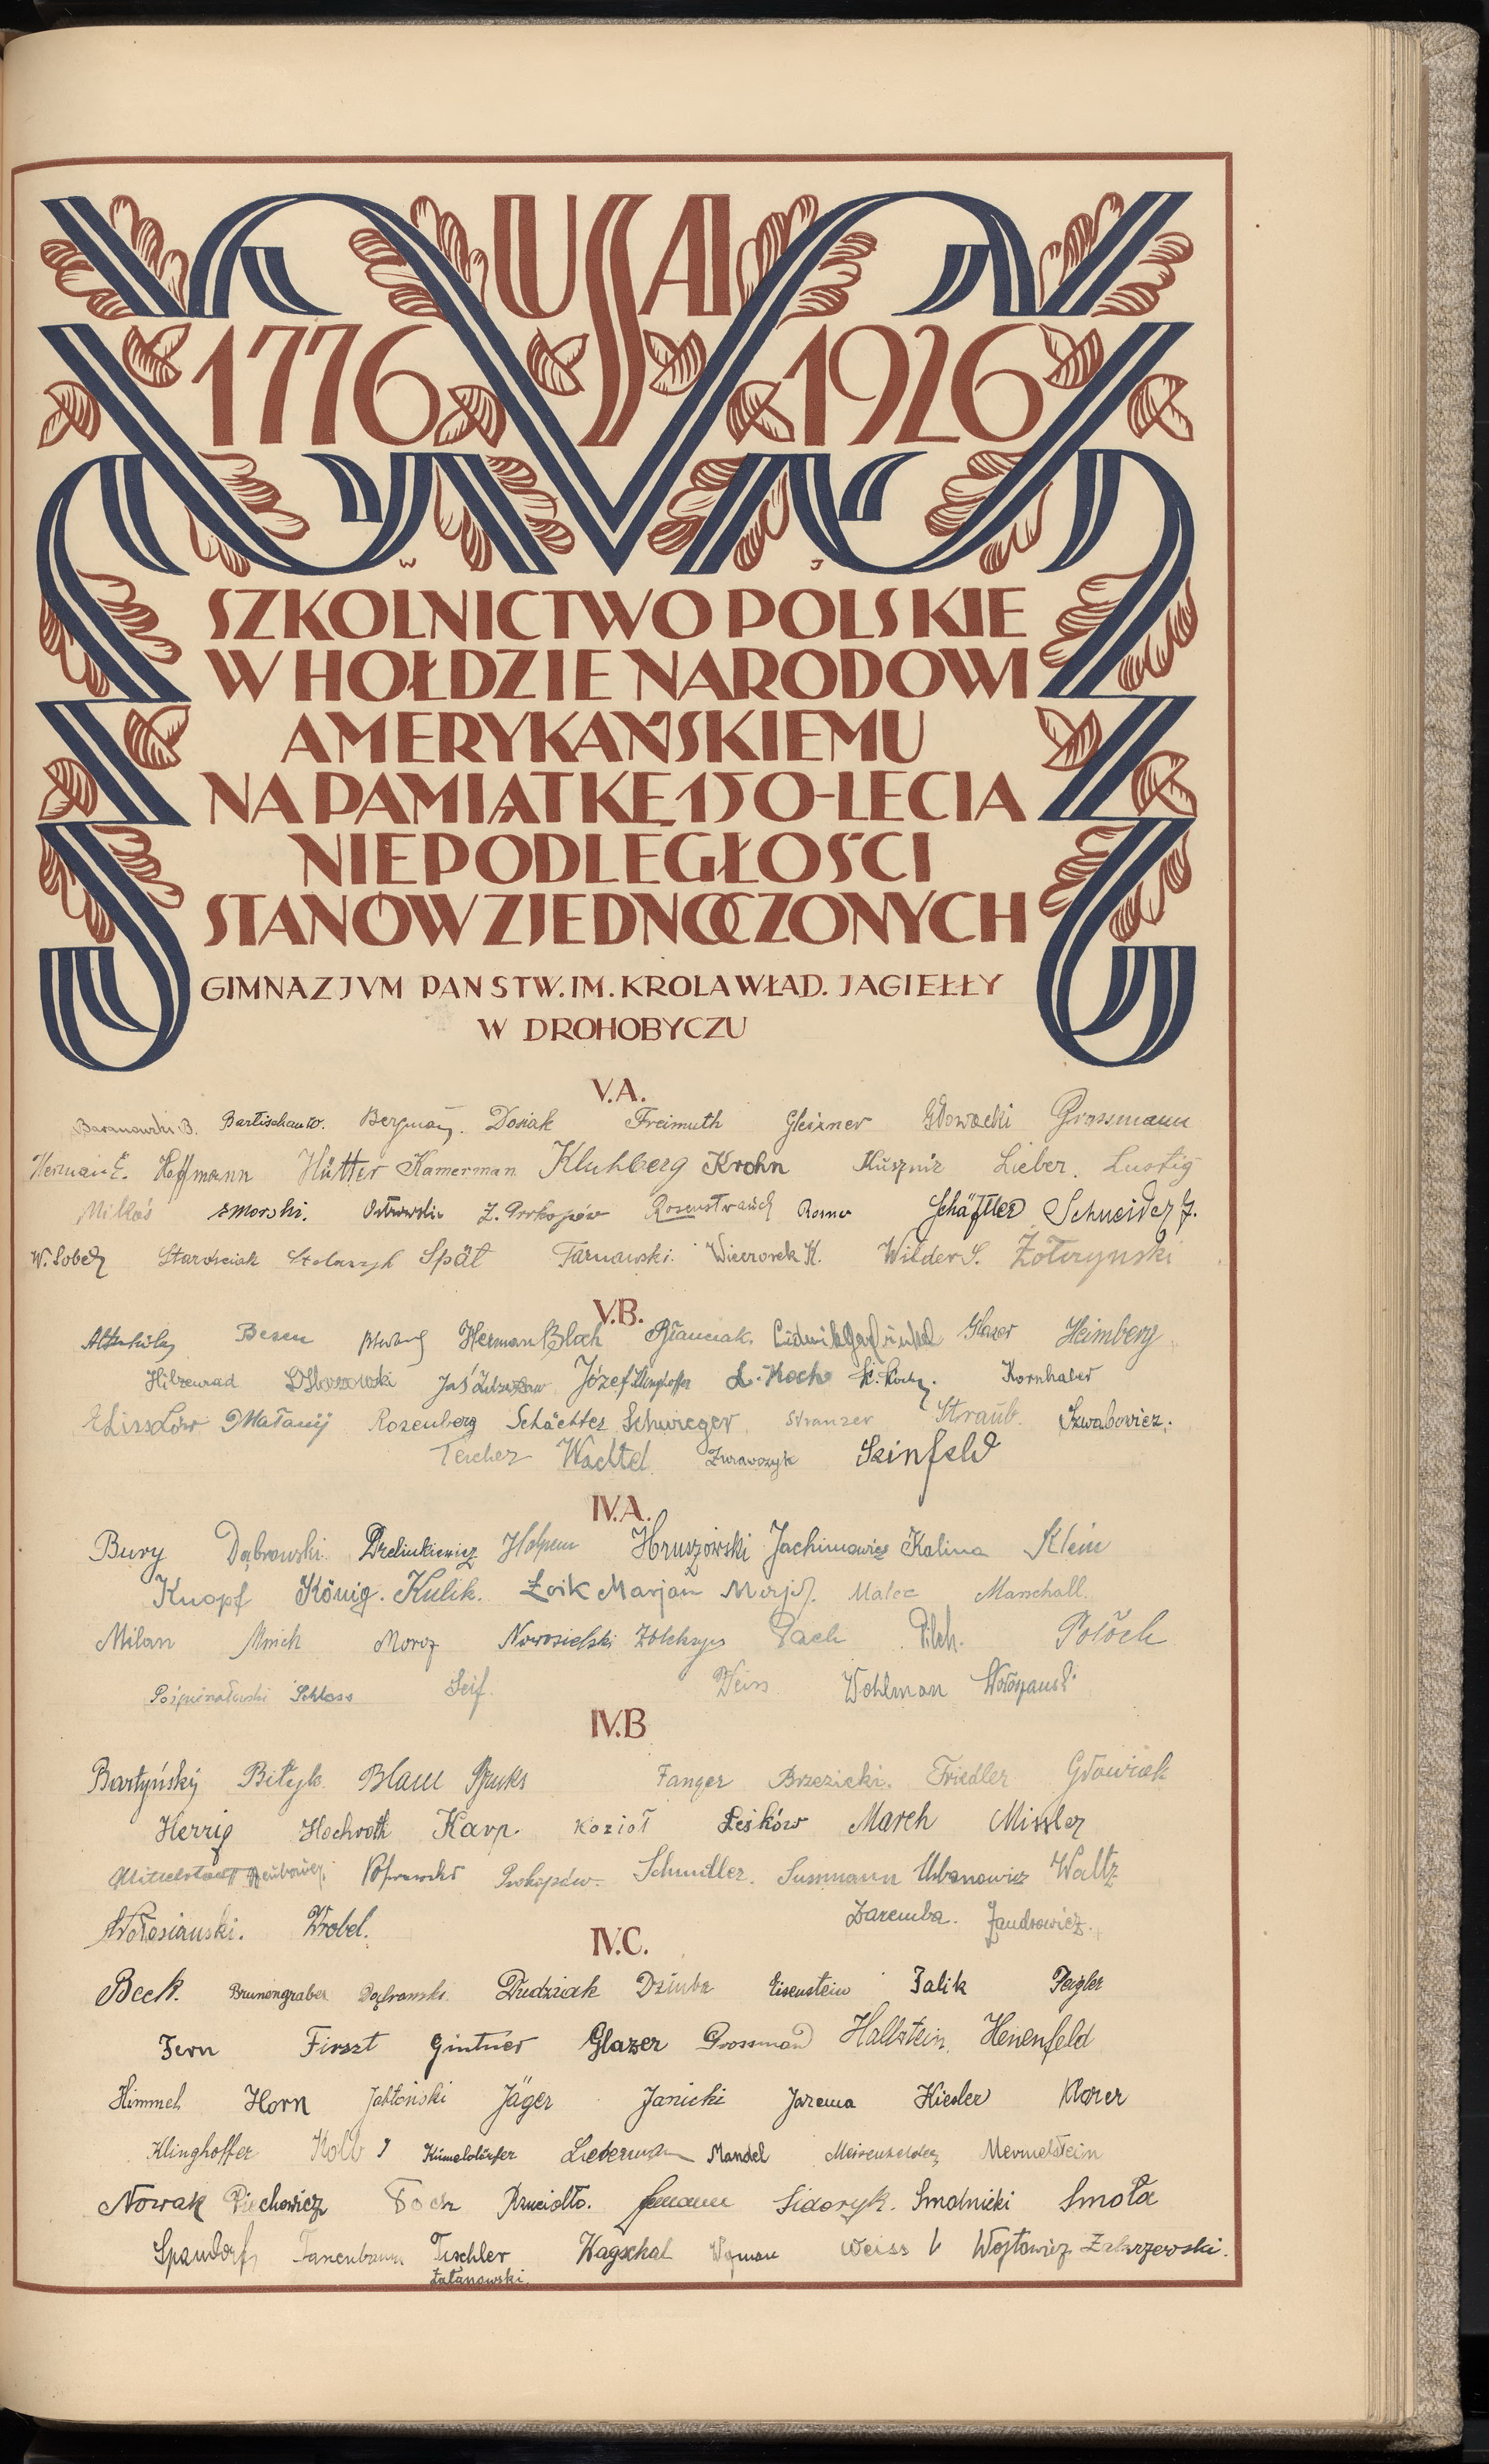 USA
1776 1926
W J
SZKOLNICTWO POLSKIE
W HOŁDZIE NARODOWI
AMERYKAŃSKIEMU
NA PAMIĄTKĘ 150-LECIA
NIEPODLEGŁOŚCI
STANÓW ZJEDNOCZONYCH
GIMNAZJVM PAŃSTW. IM. KROLA WŁAD. JAGIEŁŁY
W DROHOBYCZU
V.A.
Baranowski B. Bartischan W. Bergman Dosiak Freimuth Gleixner Głowacki Grossmann
Herman E. Hoffmann Hütter Kamerman Kluhberg Krohn Kusznir Lieber. Lustig
Mikłaś Ostrowski Z. Prokopów Rosenstrauch Rosner Schäftler Schneider J.
W. Sobel Starościak Stolarzyk Spät Tarnawski. Wieczorek K. Wilder S. Żołczyński
V.B.
Besen Herman Bloch Ludwik Garfinkel Glaser Heimberg
Hilzenrad Jaś Zdzisław Józef Klinghoffer L. Koch Kornhaber
Matanij Rosenberg Schächter Schwieger Stranzer Straub. Szwabowicz.
Teicher Wachtel Żurawczyk Szinfeld
IV.A.
Bury Dąbrowski Drelinkiewicz Halpern Hruszowski Jachimowicz Kalina Klein
Knopf König. Kulik. Łoik Marjan Malec Marschall.
Milan Mnich Moroz Nowosielski Pach Pilch. Potoch
Schloss Seif. Weiss Wohlman
IV.B
Bartyński Bityk Blau Bruks Fanger Brzezicki. Friedler Gławiak
Herzig Hochroth Karp. Kozioł Leśków March Missler
Prokopów. Schmidler. Sussmann Urbanowicz Waltz
Wołosianski. Wrobel. Zaremba. Zandrowicz.
IV.C.
Beck. Brunengraber Dąbrowski Dudziak Dziuba Eisenstein Falik Feigler
Fern Firszt Gintner Glazer Grossman Hallstein. Henenfeld
Himmel Horn Jabłoński Jäger Janicki Jarema Kiesler Klarer
Klinghoffer Kolb J Kümeldörfer Liederman Mandel Meisenhelder Mermelstein
Nowak Piechowicz Poch Pruciolło. Sidoryk. Smolnicki Smoła
Spandorf Tanenbaum Tischler Wagschal Wgman Weiss Wojtowicz Zakrzewski.
Łatanowski.